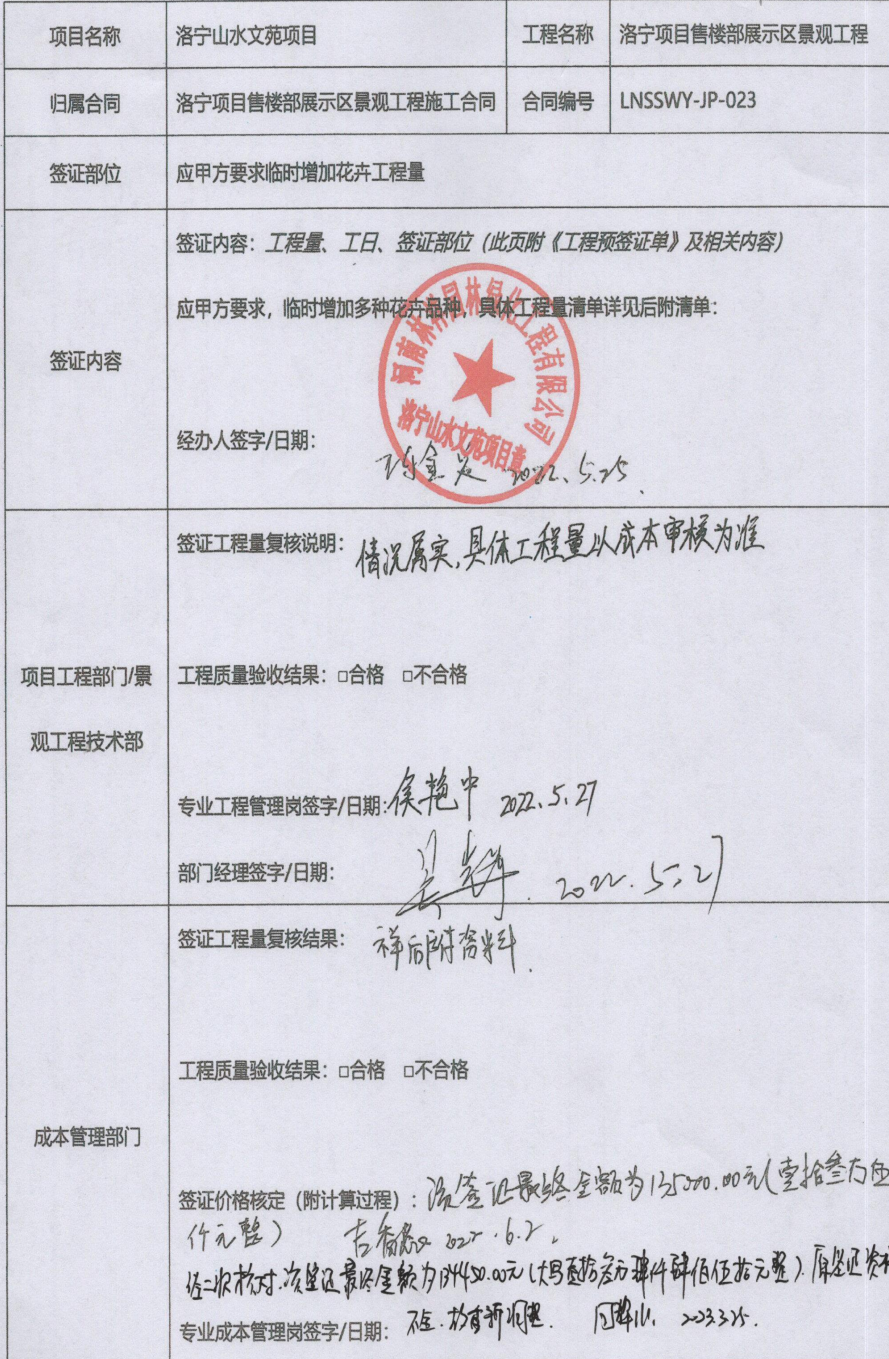 项目名称 洛宁山水文苑项目 工程名称 洛宁项目售楼部展示区景观工程
归属合同 洛宁项目售楼部展示区景观工程施工合同 合同编号 LNSSWY-JP-023
签证部位 应甲方要求临时增加花卉工程量
签证内容
签证内容：工程量、工日、签证部位（此页附《工程预签证单》及相关内容）
应甲方要求，临时增加多种花卉品种，具体工程量清单详见后附清单：
河南林祥园林绿化工程有限公司
洛宁山水文苑项目章
经办人签字/日期： 2022.5.25
项目工程部门/景
观工程技术部
签证工程量复核说明：情况属实,具体工程量以成本审核为准
工程质量验收结果：□合格 □不合格
专业工程管理岗签字/日期：侯艳中 2022.5.27
部门经理签字/日期： 2022.5.27
成本管理部门
签证工程量复核结果：祥后附资料.
工程质量验收结果：□合格 □不合格
签证价格核定（附计算过程）：该签证最终金额为135000.00元(壹拾叁万伍
仟元整) 2022.6.2.
经二次核对.该签证最终金额为134450.00元(大写壹拾叁万肆仟肆佰伍拾元整).原签证资料
专业成本管理岗签字/日期： 2023.3.25.